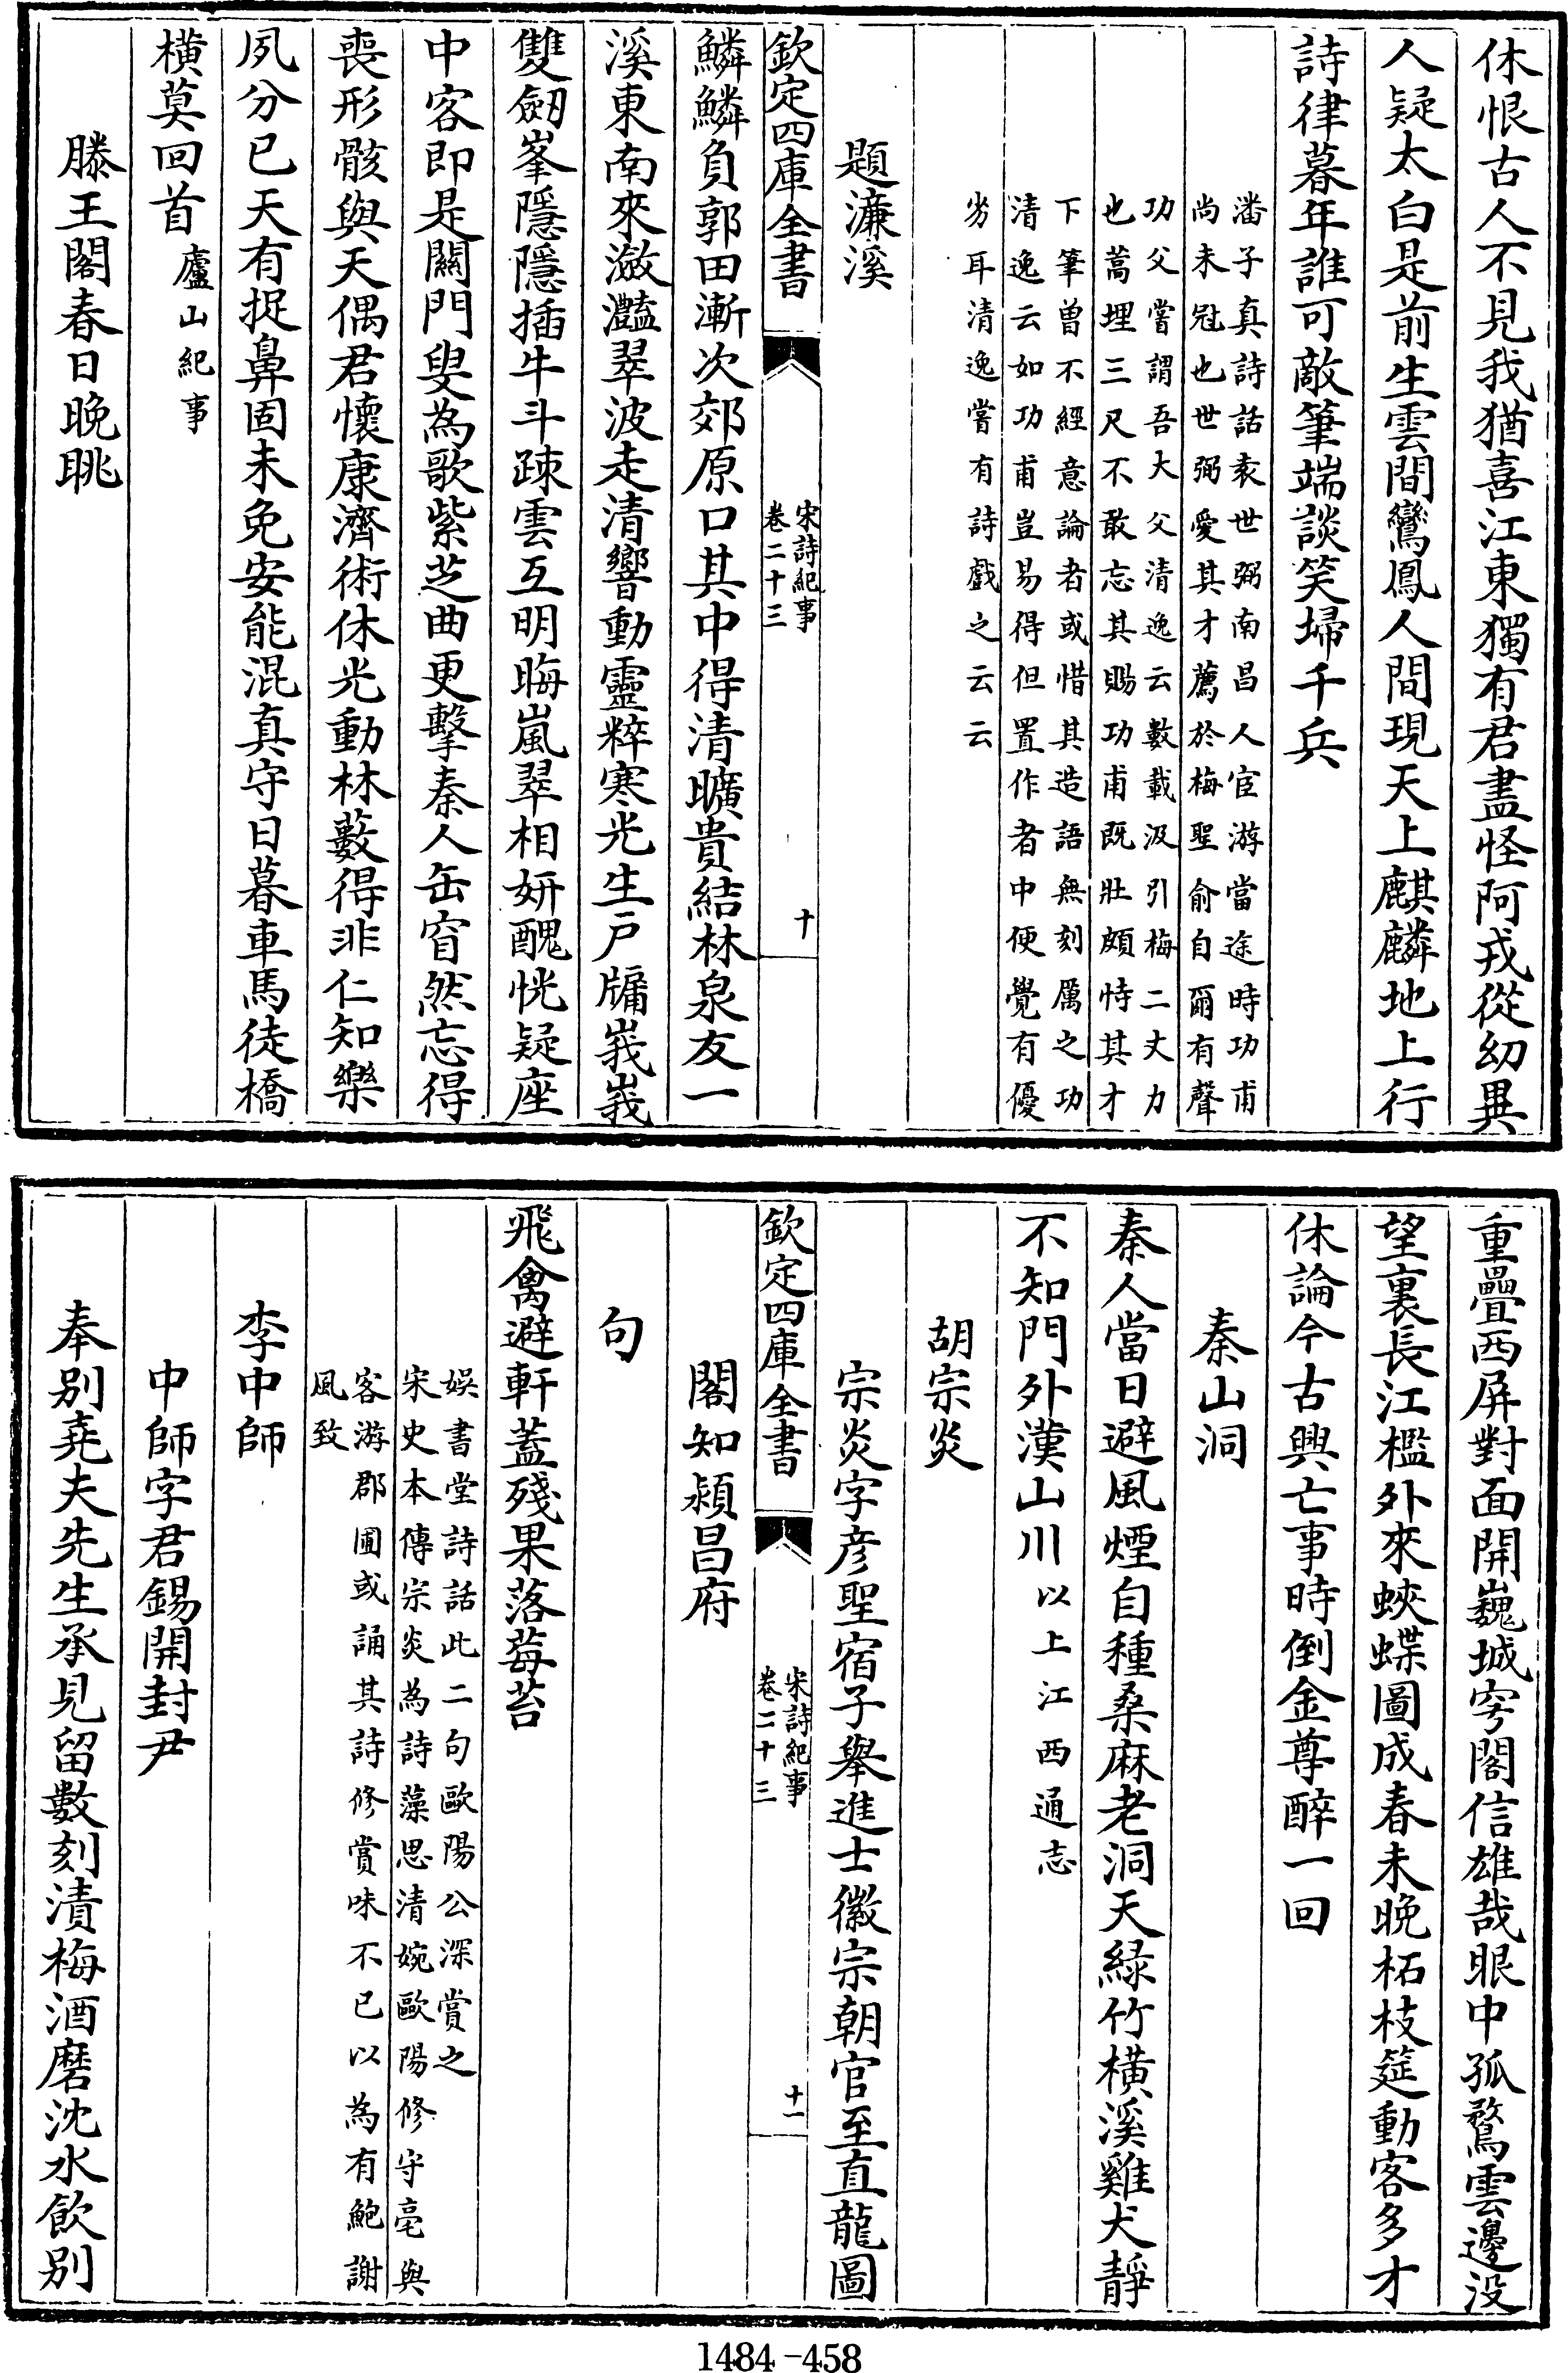 休恨古人不見我猶喜江東獨有君盡怪阿戎從幼異
人疑太白是前生雲間鸞鳳人間現天上麒麟地上行
詩律暮年誰可敵筆端談笑埽千兵
潘子真詩話袁世弼南昌人宦游當途時功甫
尚未冠也世弼愛其才薦於梅聖俞自爾有聲
功父嘗謂吾大父清逸云數載汲引梅二丈力
也蒿埋三尺不敢忘其賜功甫既壯頗恃其才
下筆曾不經意論者或惜其造語無刻厲之功
清逸云如功甫豈易得但置作者中便覺有優
劣耳清逸嘗有詩戲之云云
題濂溪
欽定四庫全書
宋詩紀事
卷二十三
十
鱗鱗負郭田漸次郊原口其中得清曠貴結林泉友一
溪東南來瀲灩翠波走清響動靈粹寒光生戶牖峩峩
雙劒峯隱隱插牛斗疎雲互明晦嵐翠相妍醜恍疑座
中客即是關門叟為歌紫芝曲更擊秦人缶窅然忘得
喪形骸與天偶君懷康濟術休光動林藪得非仁知樂
夙分已天有捉鼻固未免安能混真守日暮車馬徒橋
橫莫回首廬山紀事
滕王閣春日晚眺
重疊西屏對面開巍城穹閣信雄哉眼中孤鶩雲邊沒
望裏長江檻外來蛺蝶圖成春未晚柘枝筵動客多才
休論今古興亡事時倒金尊醉一回
秦山洞
秦人當日避風煙自種桑麻老洞天綠竹橫溪雞犬靜
不知門外漢山川以上江西通志
胡宗炎
宗炎字彦聖宿子舉進士徽宗朝官至直龍圖
欽定四庫全書
宋詩紀事
卷二十三
十一
閣知潁昌府
句
飛禽避軒蓋殘果落莓苔
娛書堂詩話此二句歐陽公深賞之
宋史本傳宗炎為詩藻思清婉歐陽修守亳與
客游郡圃或誦其詩修賞味不已以為有鮑謝
風致
李中師
中師字君錫開封尹
奉別堯夫先生承見留數刻漬梅酒磨沈水飲別
1484-458